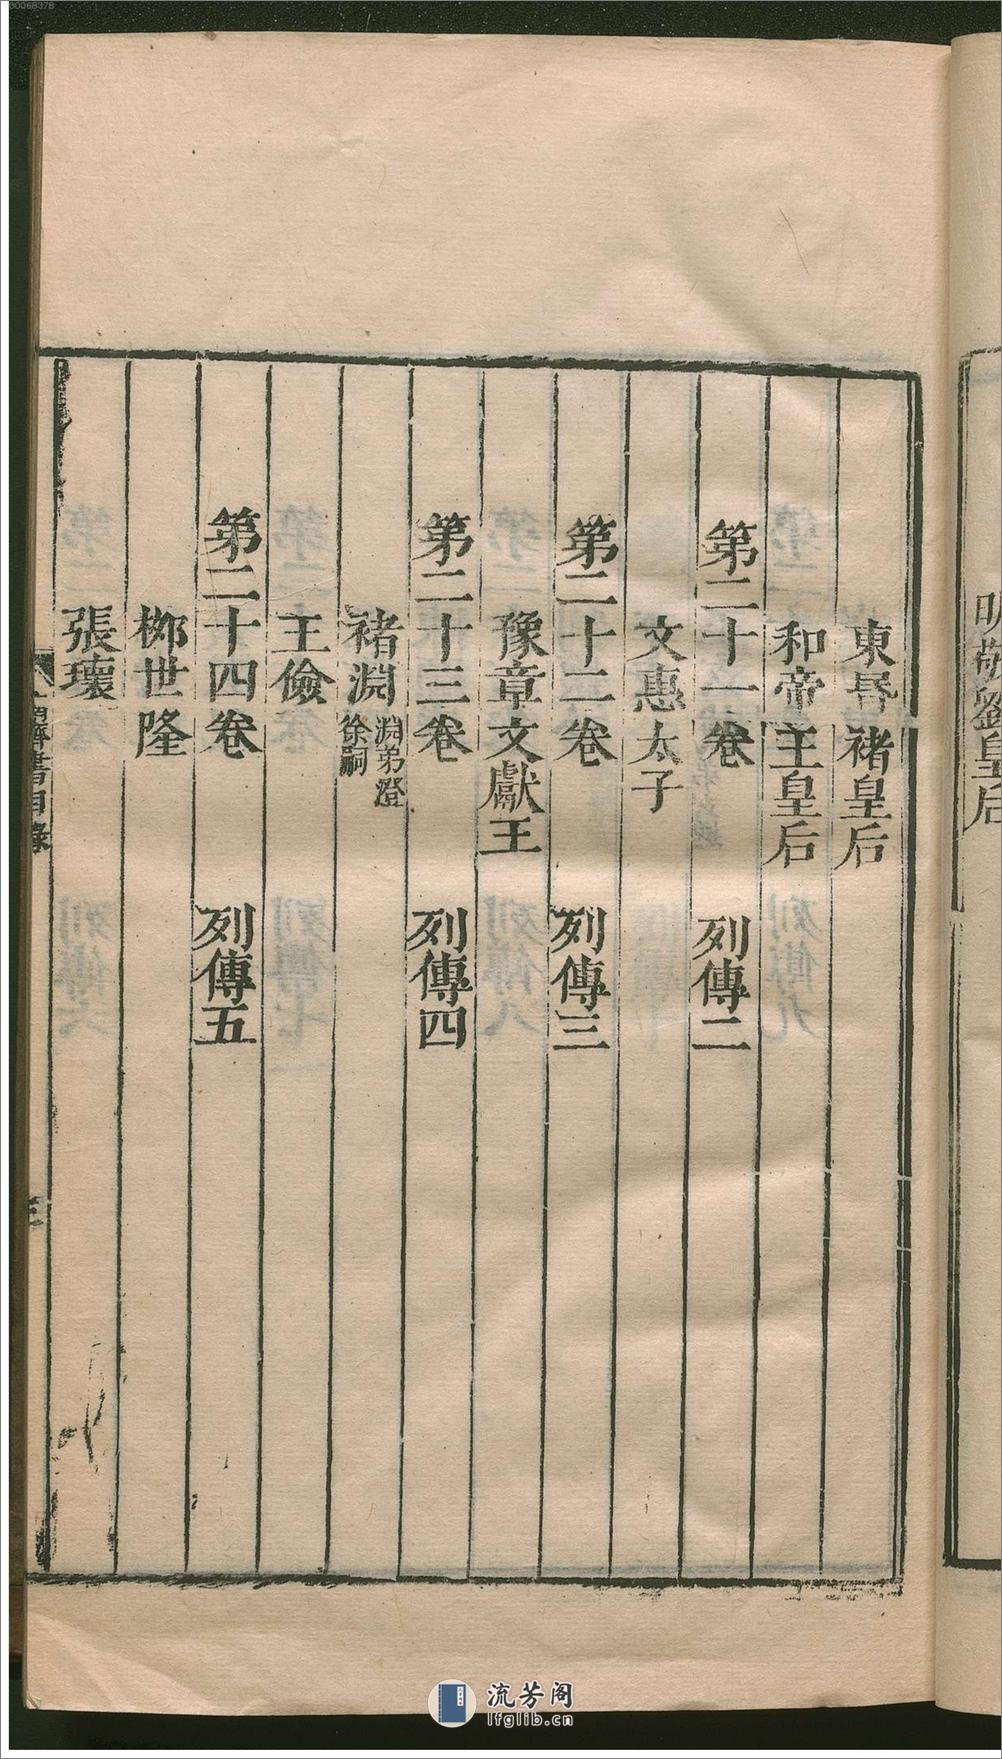 明敬劉皇后
東昬褚皇后
和帝王皇后
第二十一卷 列傳二
文惠太子
第二十二卷 列傳三
豫章文獻王
第二十三卷 列傳四
褚淵 淵弟澄 徐嗣
王儉
第二十四卷 列傳五
柳世隆
張瓌
南齊書目錄
三
00068378
流芳阁
lfglib.cn